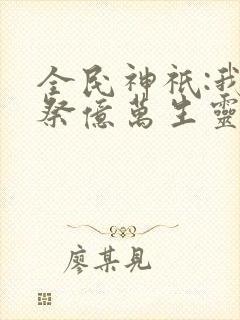 全民神祇:我
祭億萬生靈
廖某見